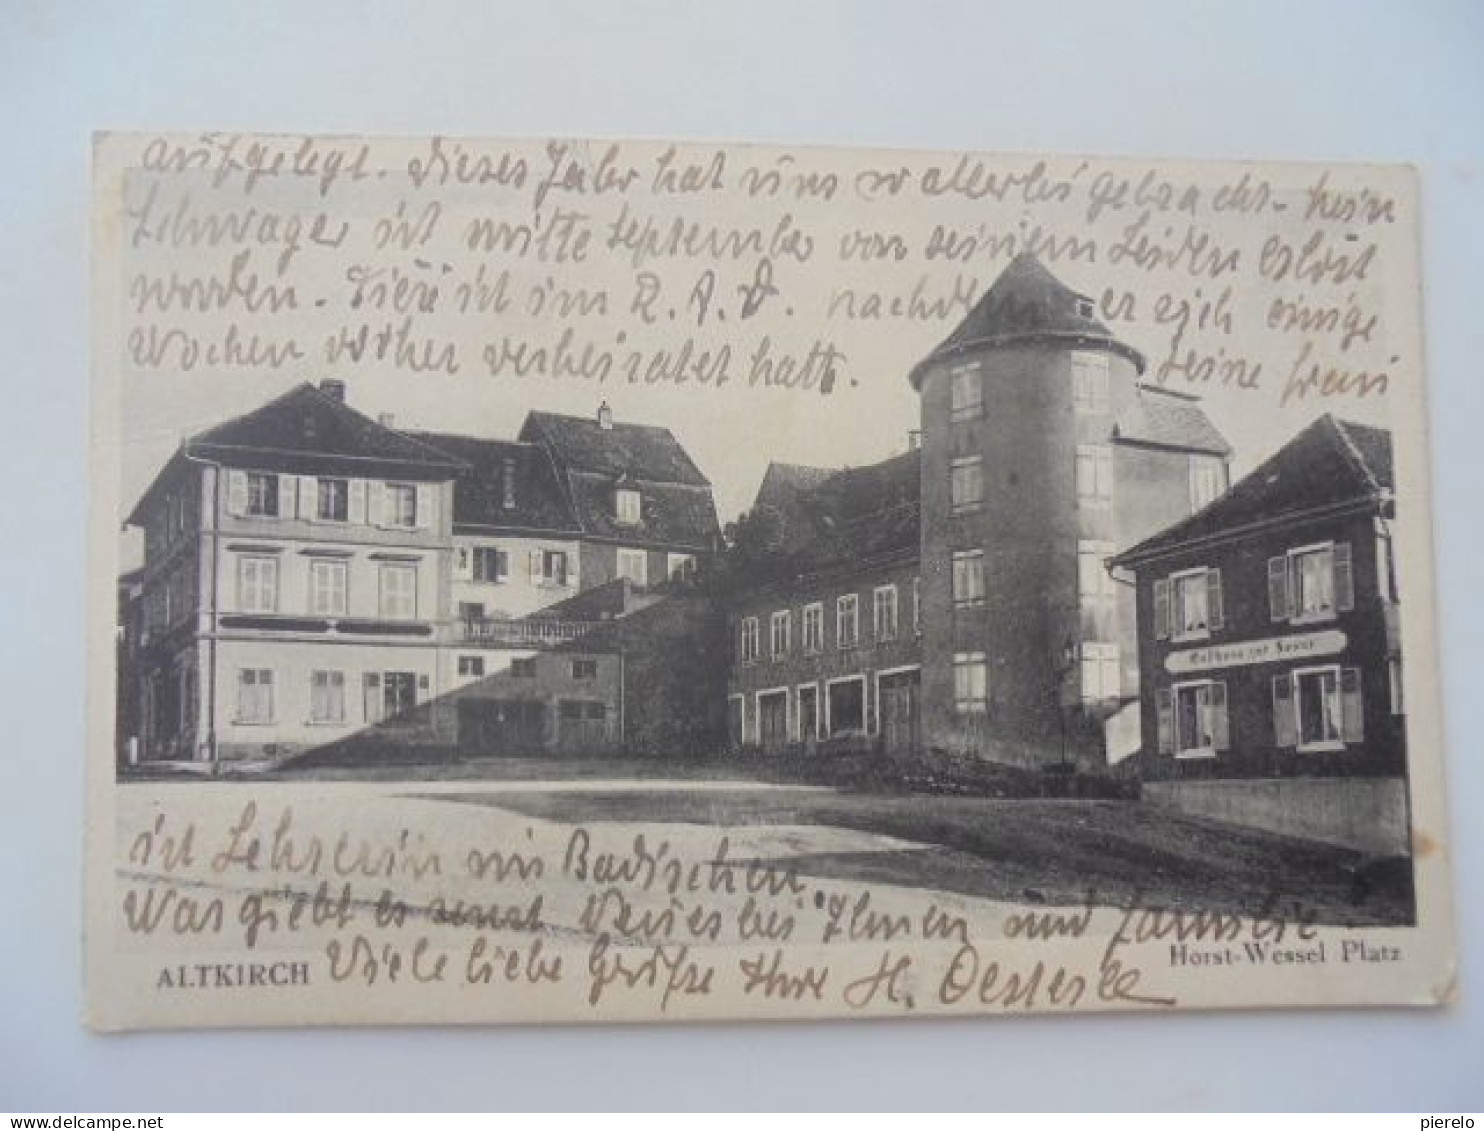 aufgelegt. Dieses Jahr hat uns so allerlei gebracht. Mein
Schwager ist mitte September von seinem Leiden erlöst
worden. ist im R.A.D. nachdem er sich einige
Wochen vorher verheiratet hatt. seine Frau
Gasthaus zur Sonne
ist Lehrerin im Badischen.
Was giebt es sonst Neues bei Ihnen und Familie
ALTKIRCH Viele liebe Grüße Ihre H. Oesterle
Horst-Wessel Platz
delcampe.net
pierelo